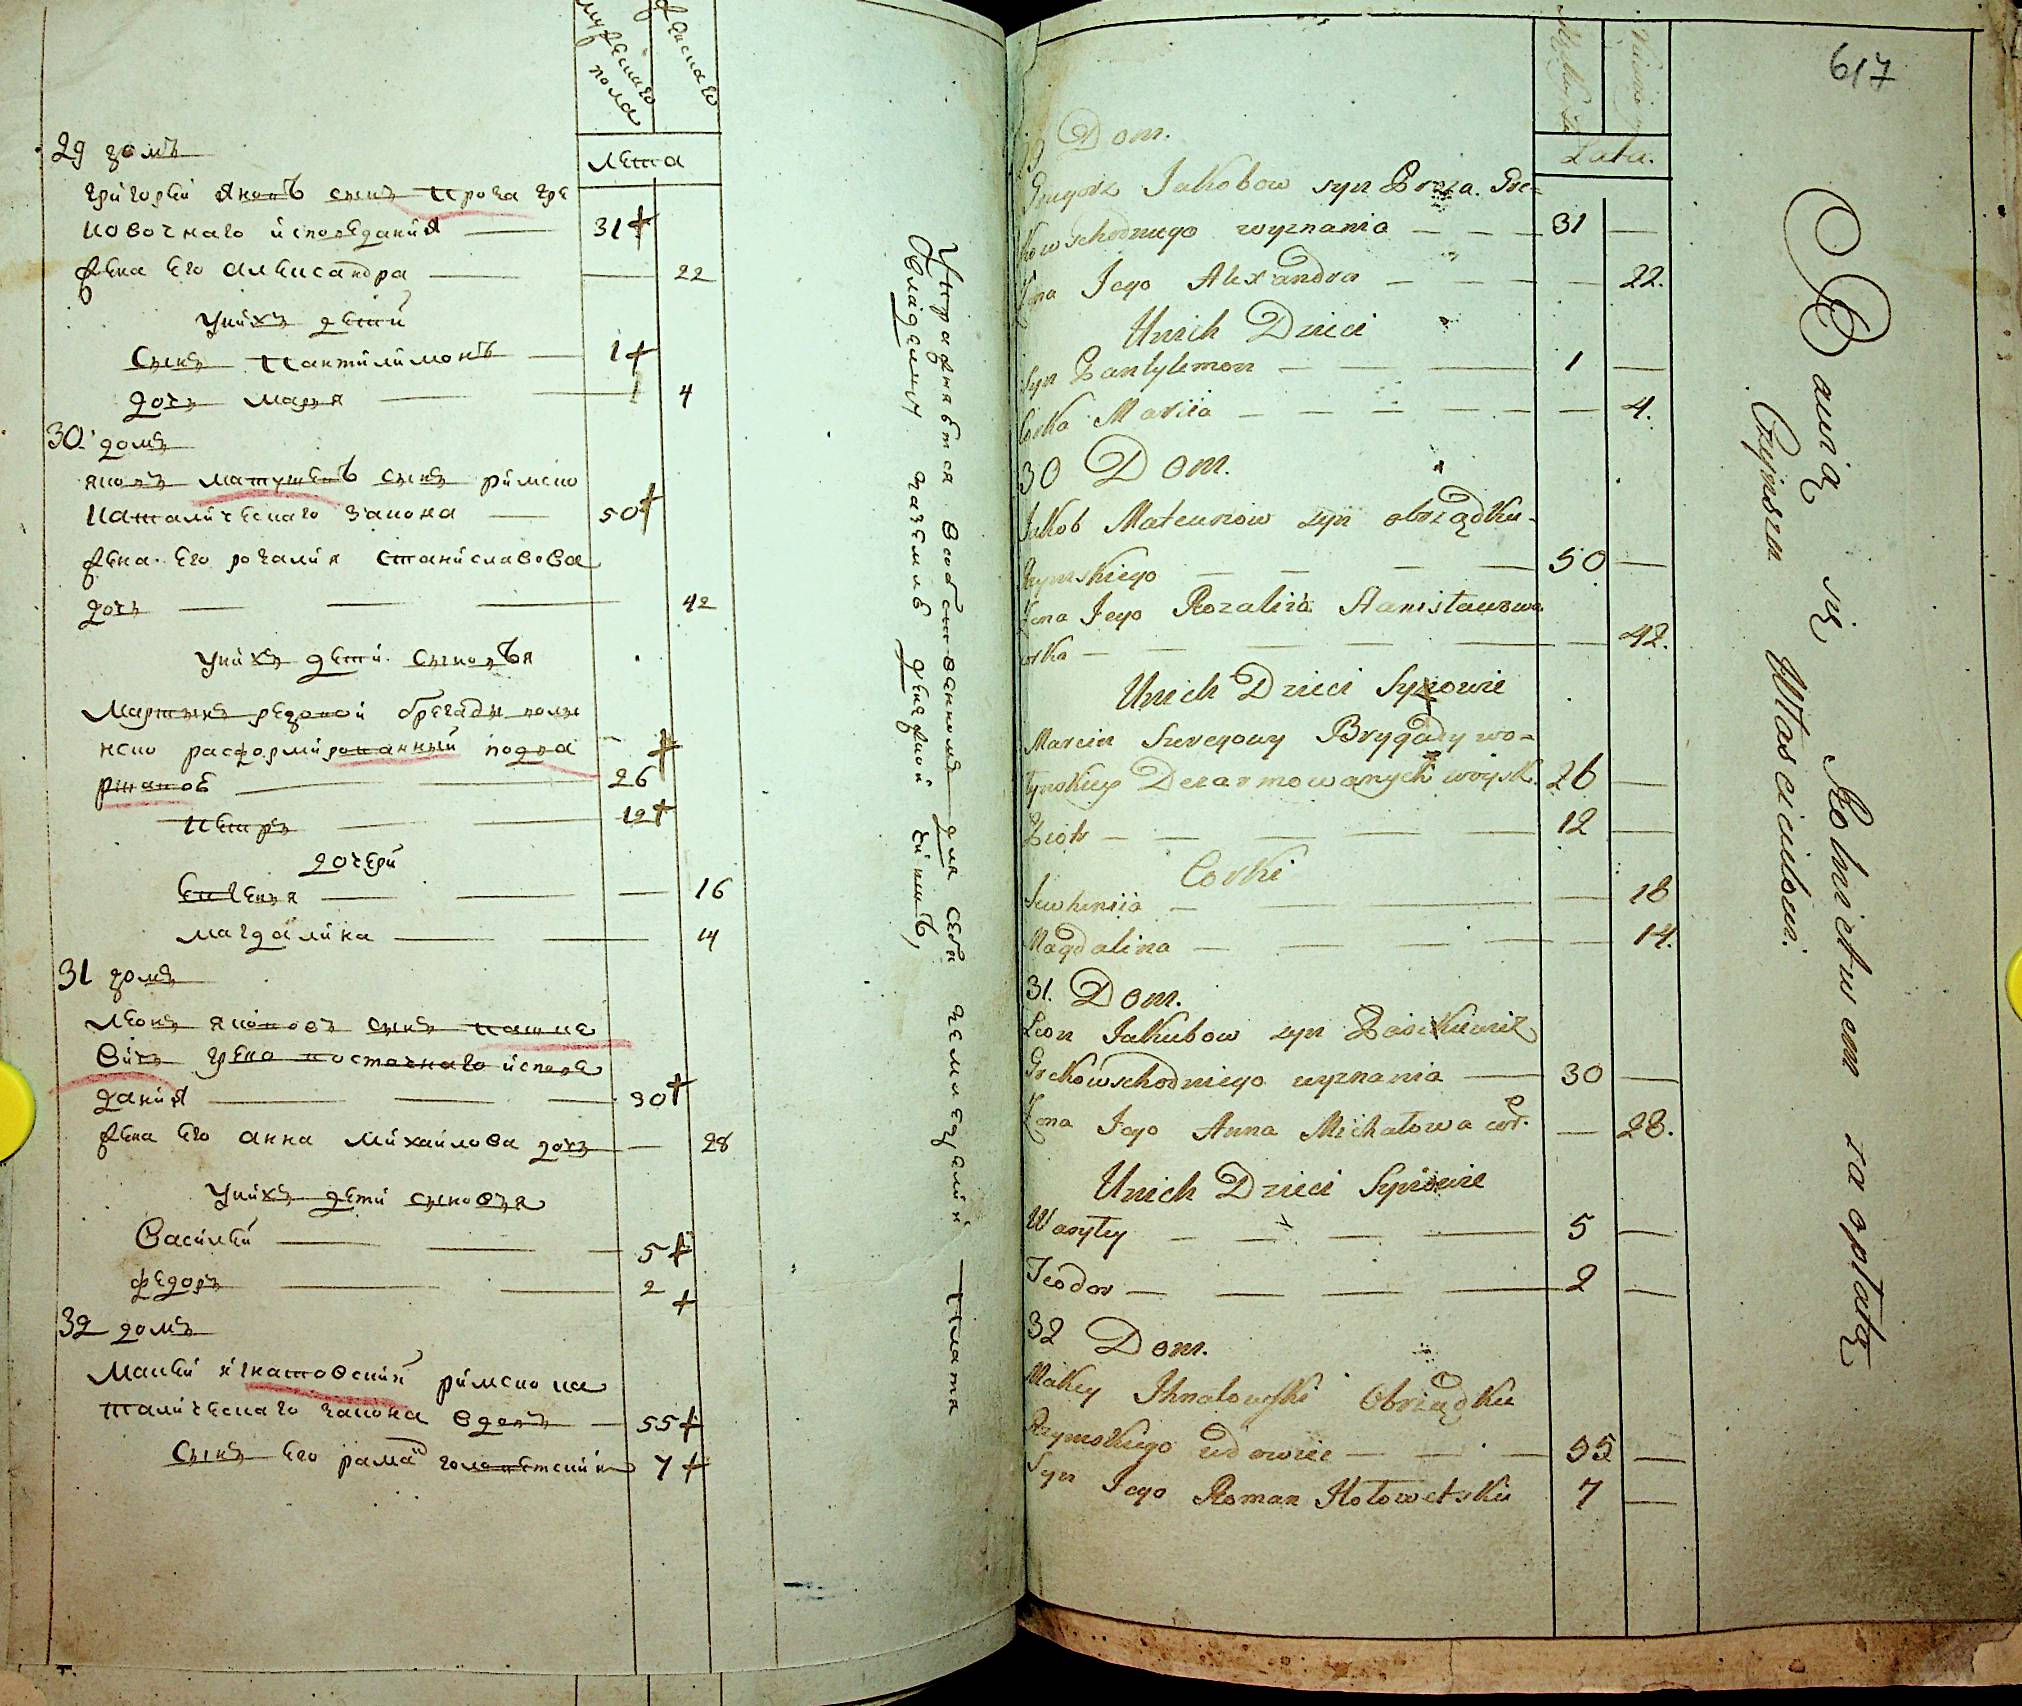 мужескаго
пола
женскаго
лета
29 домъ
григорей яковъ сынъ Проча гре
ковочнаго исповедания 31
жена его александра 22
у них дети
Сынъ Пантилимонъ 1
дочь марья 4
30 домъ
яковъ матушевъ сынъ римско
католическаго закона 50
жена его розалия станиславова
дочь 42
у них дети сыновья
Мартынъ редовой брегады волы
нско расформированный подха
ржанов 26
петръ 12
дочери
евгения 16
магдалина 14
31 домъ
леонъ яковов сынъ пашке
вичъ греко восточнаго испове
дания 30
жена его анна михайлова дочь 28
у них дети сыновья
василей 5
федоръ 2
32 домъ
макей игнатовский римско ка
толическаго закона вдовъ 55
сынъ его рама головетский 7
Упражняется собственною для себя земледелия плата
владелцу чиншъ
617
Lata.
Dom.
Gregorz Jakobow syn Procza. Gre=
kowschodniego wyznania 31
Żona Jego Alexandra 22.
Unich Dzieci
Syn Pantylemon 1
Corka Mariia 4.
30 Dom.
Jakob Mateuszow syn obrządku
Rzymskiego 50
Żona Jego Rozaliia Stanisławowa
corka 42.
Unich Dzieci Synowie
Marcin Szeregowy Brygady wo=
łynskiey Dezarmowanych woysk. 26
Piotr 12
Corki
Jewheniia 18
Magdalina 14.
31. Dom.
Leon Jakubow syn Paszkiewicz
Grekowschodniego wyznania 30
Żona Jego Anna Michałowa cor. 28.
Unich Dzieci Synowie
Wasyley 5
Teodor 2
32 Dom.
Makey Ihnatowski Obrządku
Rzymskiego wdowiec 55
Syn Jego Roman Hołowetski 7
Bawią się Rolnictwem za opłatą
Czynszu Własciciilowi.